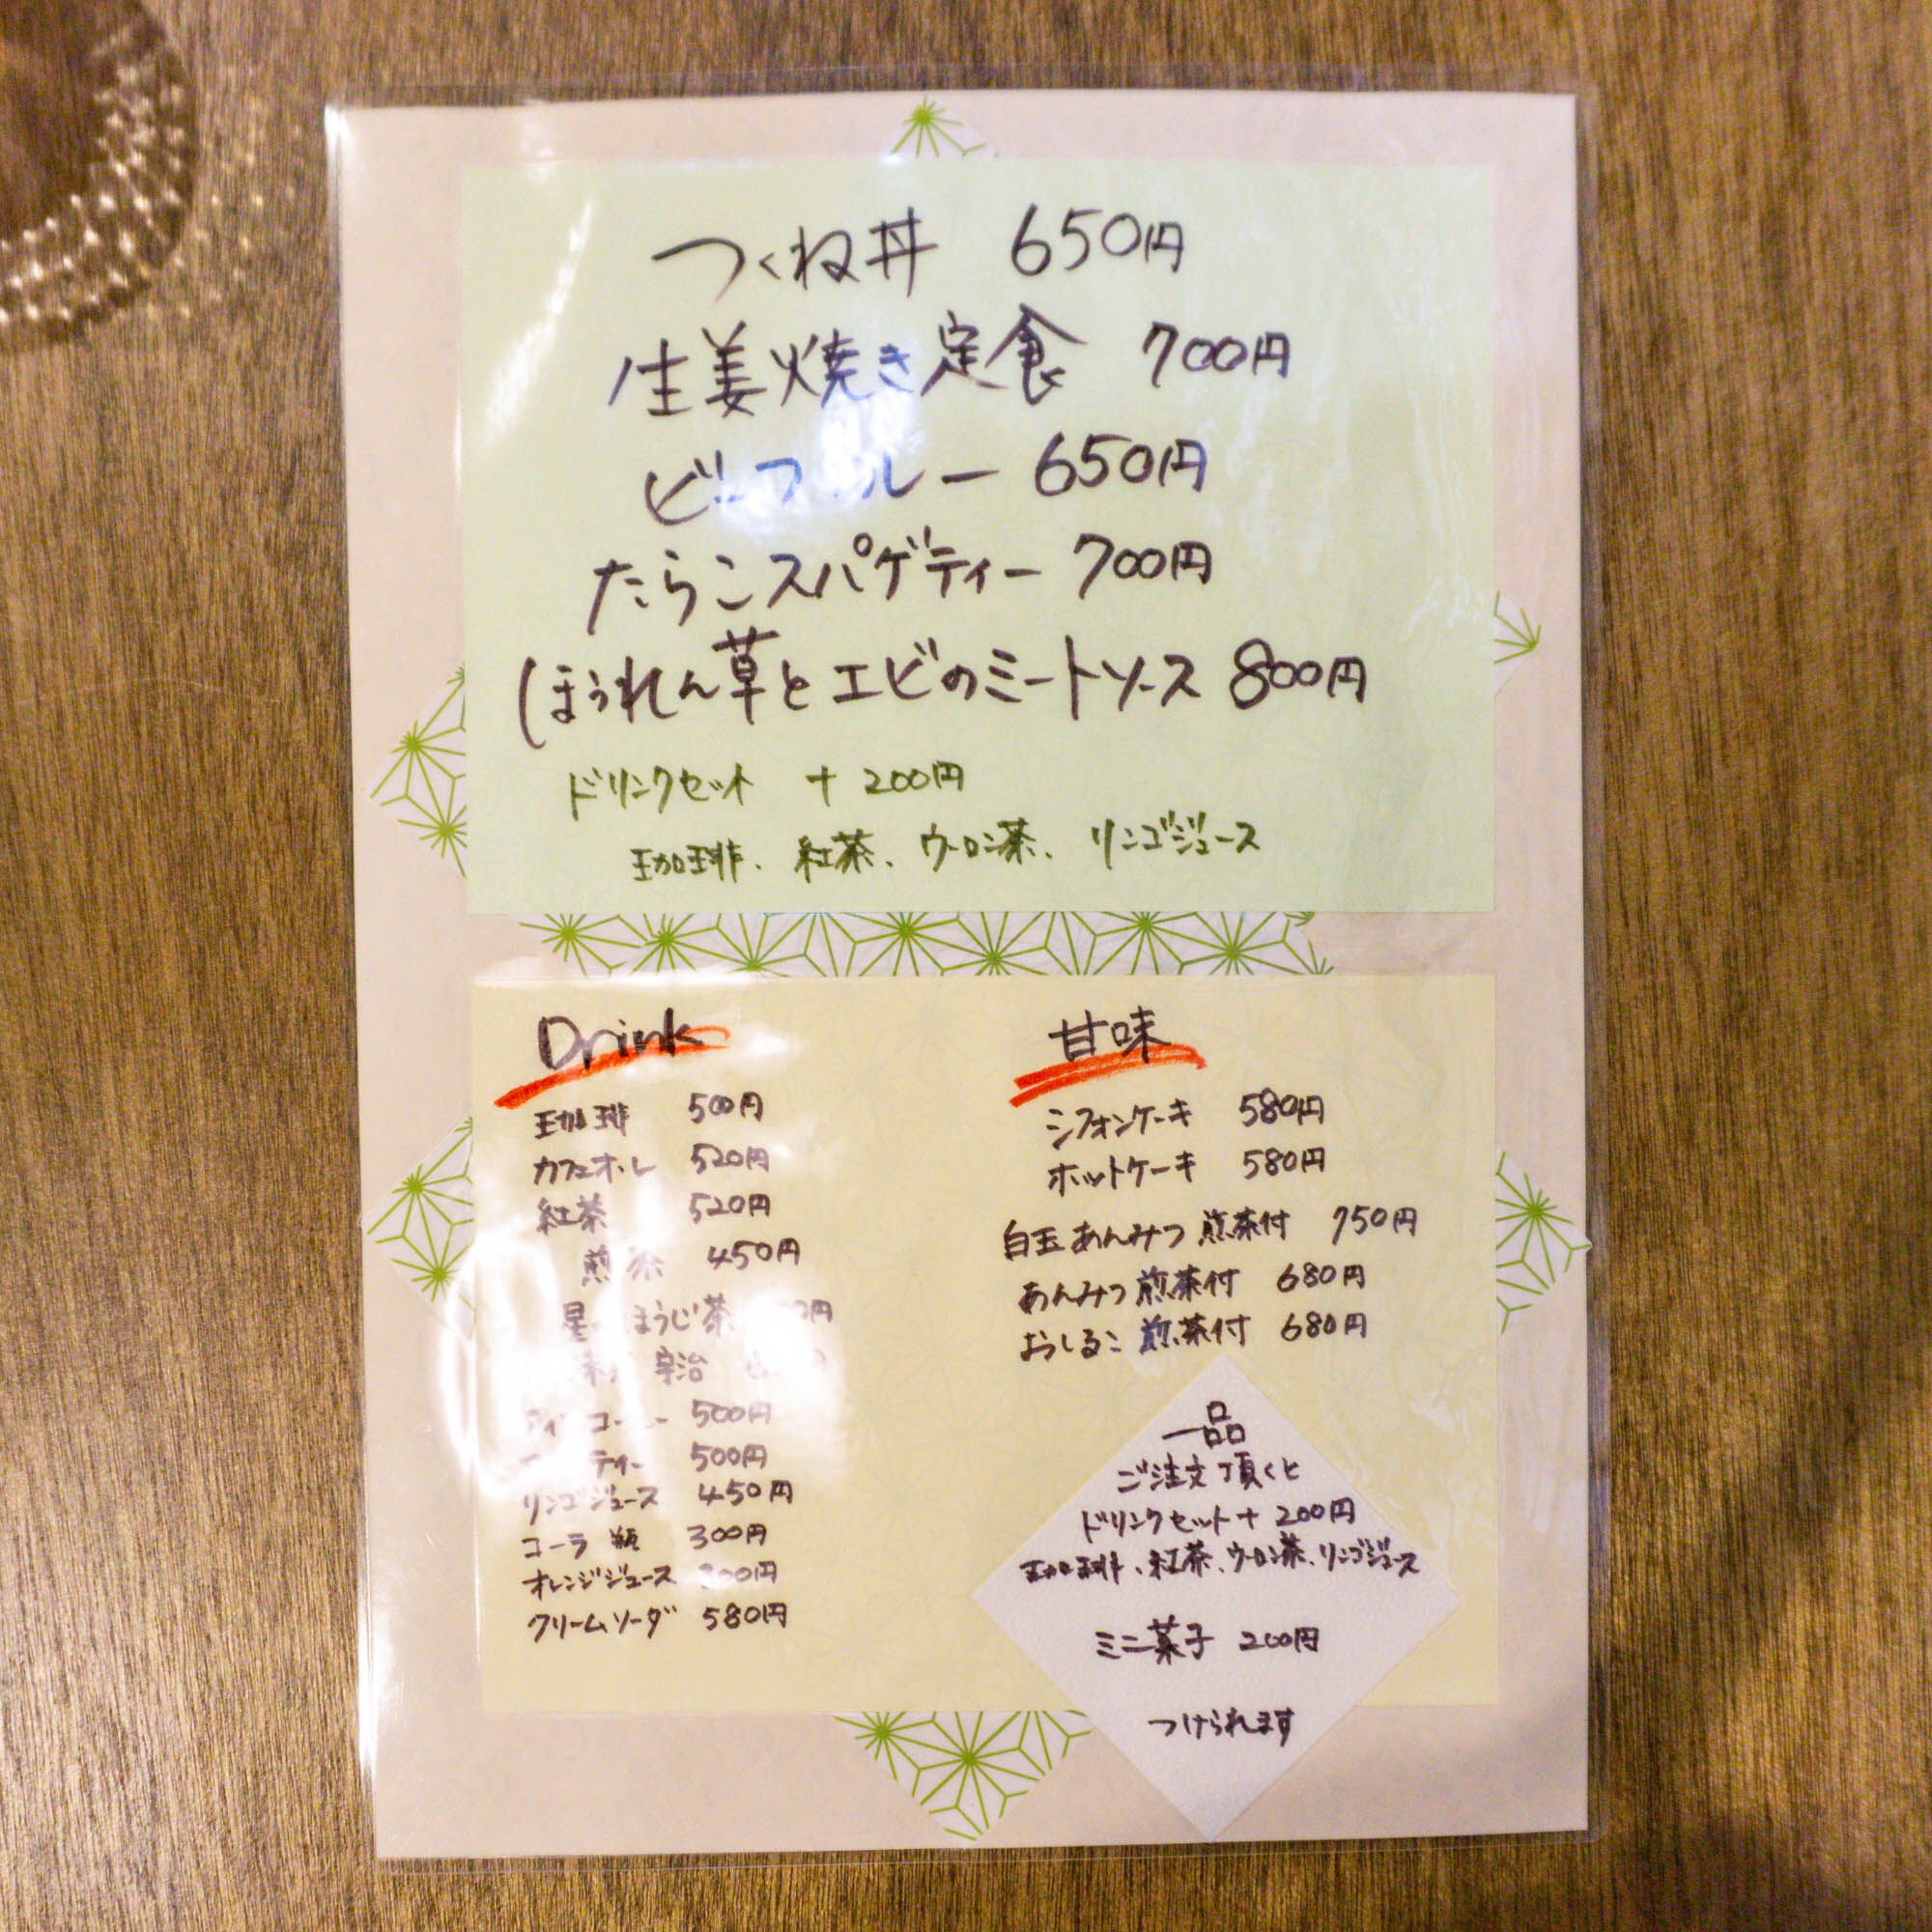 つくね丼 650円
生姜焼き定食 700円
ビーフカレー 650円
たらこスパゲティー 700円
ほうれん草とエビのミートソース 800円
ドリンクセット + 200円
珈琲、紅茶、ウーロン茶、リンゴジュース
Drink
珈琲 500円
カフェオ・レ 520円
紅茶 520円
煎茶 450円
ほうじ茶
宇治
コーヒー 500円
ティー 500円
リンゴジュース 450円
コーラ 瓶 300円
オレンジジュース
クリームソーダ 580円
甘味
シフォンケーキ 580円
ホットケーキ 580円
白玉あんみつ 煎茶付 750円
あんみつ 煎茶付 680円
おしるこ 煎茶付 680円
一品
ご注文頂くと
ドリンクセット + 200円
珈琲、紅茶、ウーロン茶、リンゴジュース
ミニ菓子 200円
つけられます